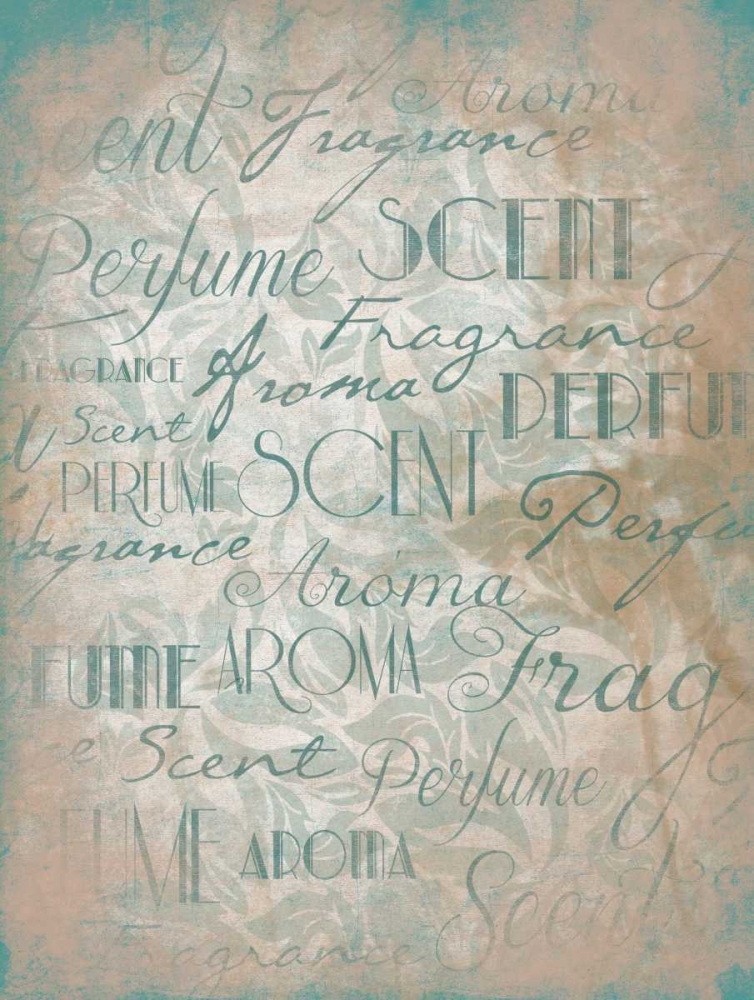 Aroma
cent Fragrance
Perfume SCENT
Fragrance
FRAGRANCE Aroma PERFUM
Scent
PERFUME SCENT
Perfu
agrance
Aroma
FUME AROMA Frag
e Scent Perfume
FUME AROMA
Scent
Fragrance